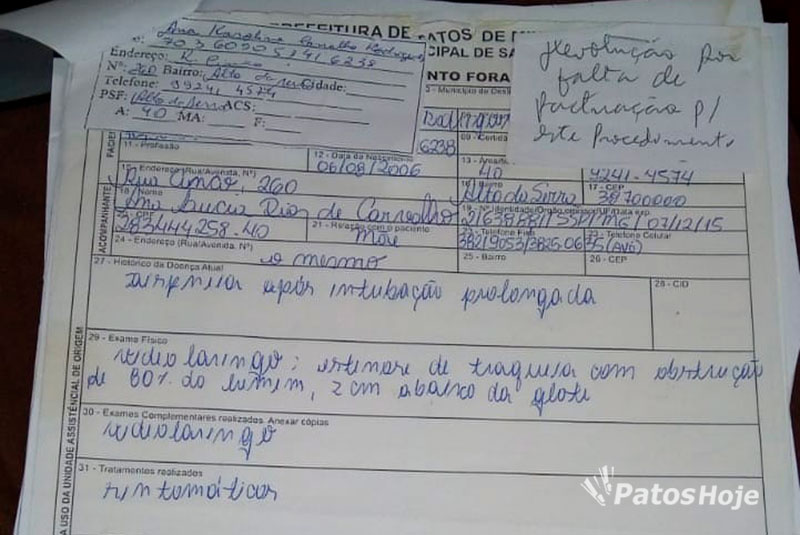 PREFEITURA DE PATOS DE MI
CIPAL DE SA
NTO FORA
Ana Karoline Carvalho Rodrigues
703609051416238
Endereço: R.
Nº: 260 Bairro: Alto da Serra Cidade:
Telefone: 99241 4574
PSF: Alto da Serra ACS:
A: 40 MA: F:
Devolução por
falta de
pactuação p/
este Procedimento
6238
11 - Profissão
12 - Data de Nascimento
06/08/2006
40
9241-4574
15 - Endereço (Rua/Avenida, Nº)
260
16 - Bairro
Alto da Serra
17 - CEP
38700000
ACOMPANHANTE
18 - Nome
Ana Lucia Dias de Carvalho
19 - Nº Identidade/Órgão emissor/UF/Data exp.
07/12/15
20 - CPF
283444258-40
21 - Relação com o paciente
Mãe
22 - Telefone Fixo
23 - Telefone Celular
38219053/3825.0635 (Avó)
24 - Endereço (Rua/Avenida, Nº)
o mesmo
25 - Bairro
26 - CEP
27 - Histórico da Doença Atual
28 - CID
Dispneia após intubação prolongada
A USO DA UNIDADE ASSISTÊNCIAL DE ORIGEM
29 - Exame Físico
videolaringo: estenose de traqueia com obstrução
de 80% do lumim, 2 cm abaixo da glote
30 - Exames Complementares realizados. Anexar cópias
videolaringo
31 - Tratamentos realizados
sintomáticos
PatosHoje